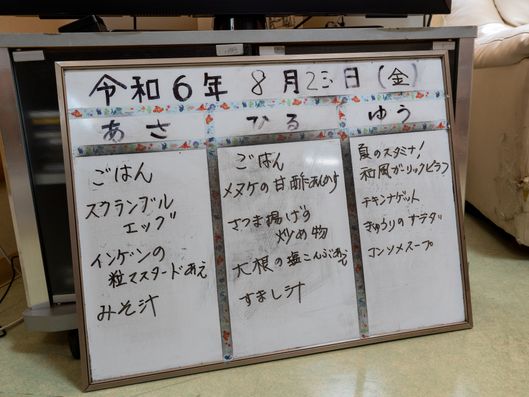 令和6年 8月23日(金)
あさ
ごはん
スクランブル
エッグ
インゲンの
粒マスタードあえ
みそ汁
ひる
ごはん
メヌケの甘酢あんかけ
さつま揚げの
炒め物
大根の塩こんぶあえ
すまし汁
ゆう
夏のスタミナ!
和風ガーリックピラフ
チキンナゲット
きゅうりのサラダ
コンソメスープ